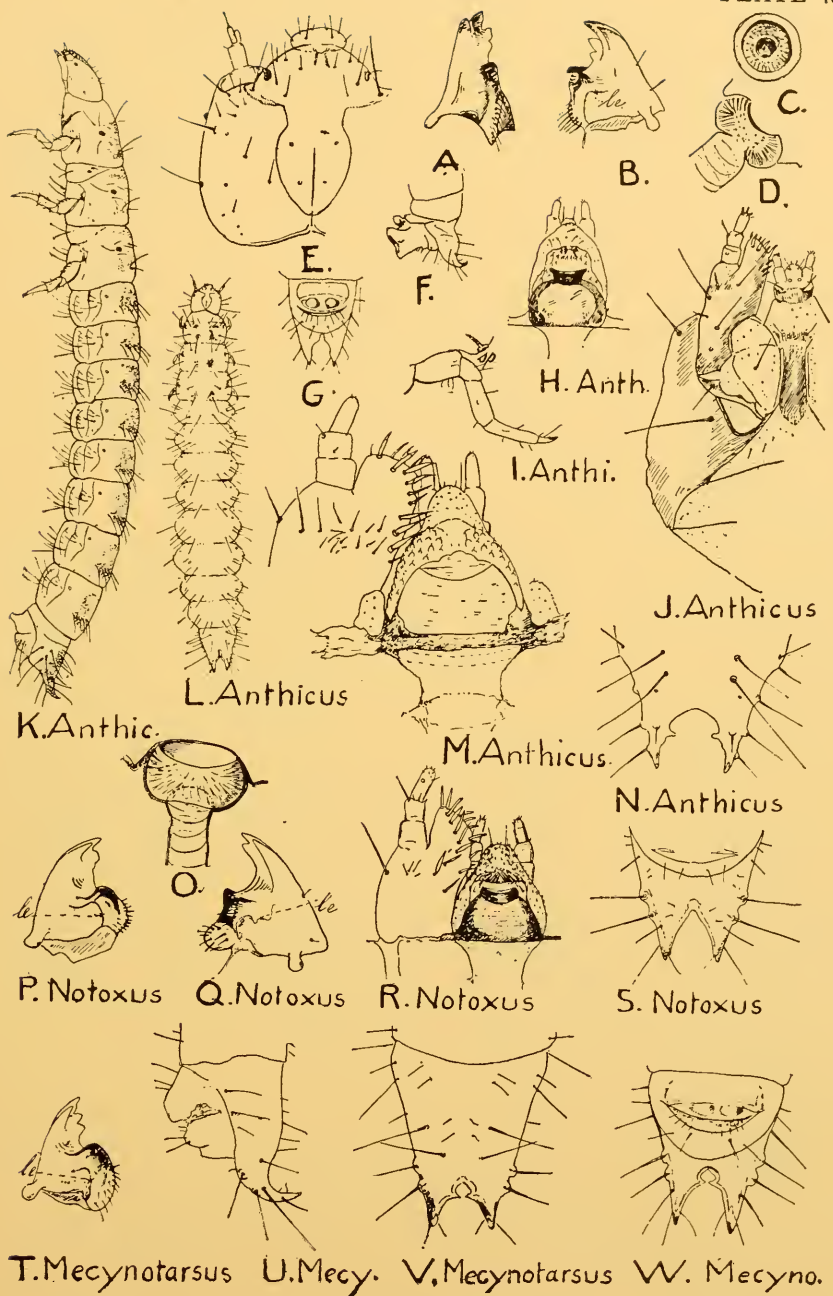 PLATE
A.
B.
le
C.
D.
E.
F.
G.
H. Anth.
sp
I. Anthi.
J. Anthicus
K. Anthic.
L. Anthicus
M. Anthicus.
N. Anthicus
O.
le
le
P. Notoxus Q. Notoxus R. Notoxus S. Notoxus
le
T. Mecynotarsus U. Mecy. V. Mecynotarsus W. Mecyno.